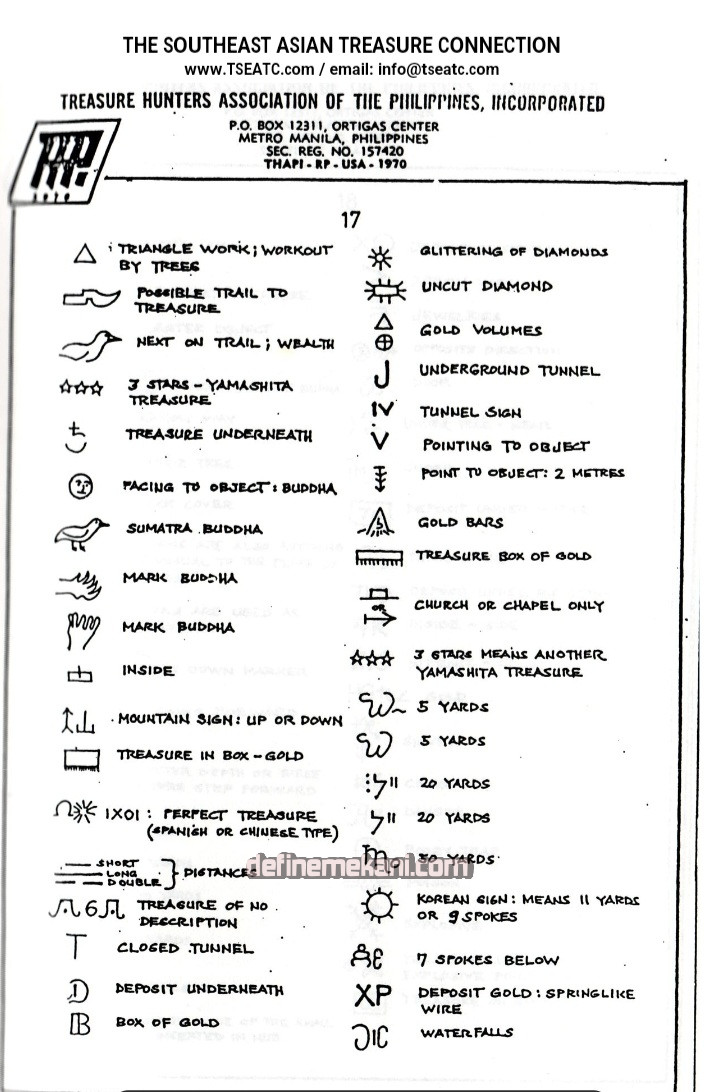 THE SOUTHEAST ASIAN TREASURE CONNECTION
www.TSEATC.com / email: info@tseatc.com
TREASURE HUNTERS ASSOCIATION OF THE PHILIPPINES, INCORPORATED
P.O. BOX 12311, ORTIGAS CENTER
METRO MANILA, PHILIPPINES
SEC. REG. NO. 157420
THAPI - RP - USA - 1970
1970
17
TRIANGLE WORK; WORKOUT
BY TREES
POSSIBLE TRAIL TO
TREASURE
NEXT ON TRAIL; WEALTH
3 STARS - YAMASHITA
TREASURE
TREASURE UNDERNEATH
FACING TO OBJECT: BUDDHA
SUMATRA BUDDHA
MARK BUDDHA
MARK BUDDHA
INSIDE
MOUNTAIN SIGN: UP OR DOWN
TREASURE IN BOX - GOLD
1X01 : PERFECT TREASURE
(SPANISH OR CHINESE TYPE)
SHORT
LONG
DOUBLE
DISTANCES
TREASURE OF NO
DESCRIPTION
T CLOSED TUNNEL
D DEPOSIT UNDERNEATH
B BOX OF GOLD
GLITTERING OF DIAMONDS
UNCUT DIAMOND
GOLD VOLUMES
J UNDERGROUND TUNNEL
IV TUNNEL SIGN
V POINTING TO OBJECT
POINT TO OBJECT: 2 METRES
GOLD BARS
TREASURE BOX OF GOLD
OR
CHURCH OR CHAPEL ONLY
3 STARS MEANS ANOTHER
YAMASHITA TREASURE
5 YARDS
5 YARDS
20 YARDS
20 YARDS
50 YARDS
definemekani.com
KOREAN SIGN: MEANS 11 YARDS
OR 9 SPOKES
7 SPOKES BELOW
XP DEPOSIT GOLD: SPRINGLIKE
WIRE
WATERFALLS